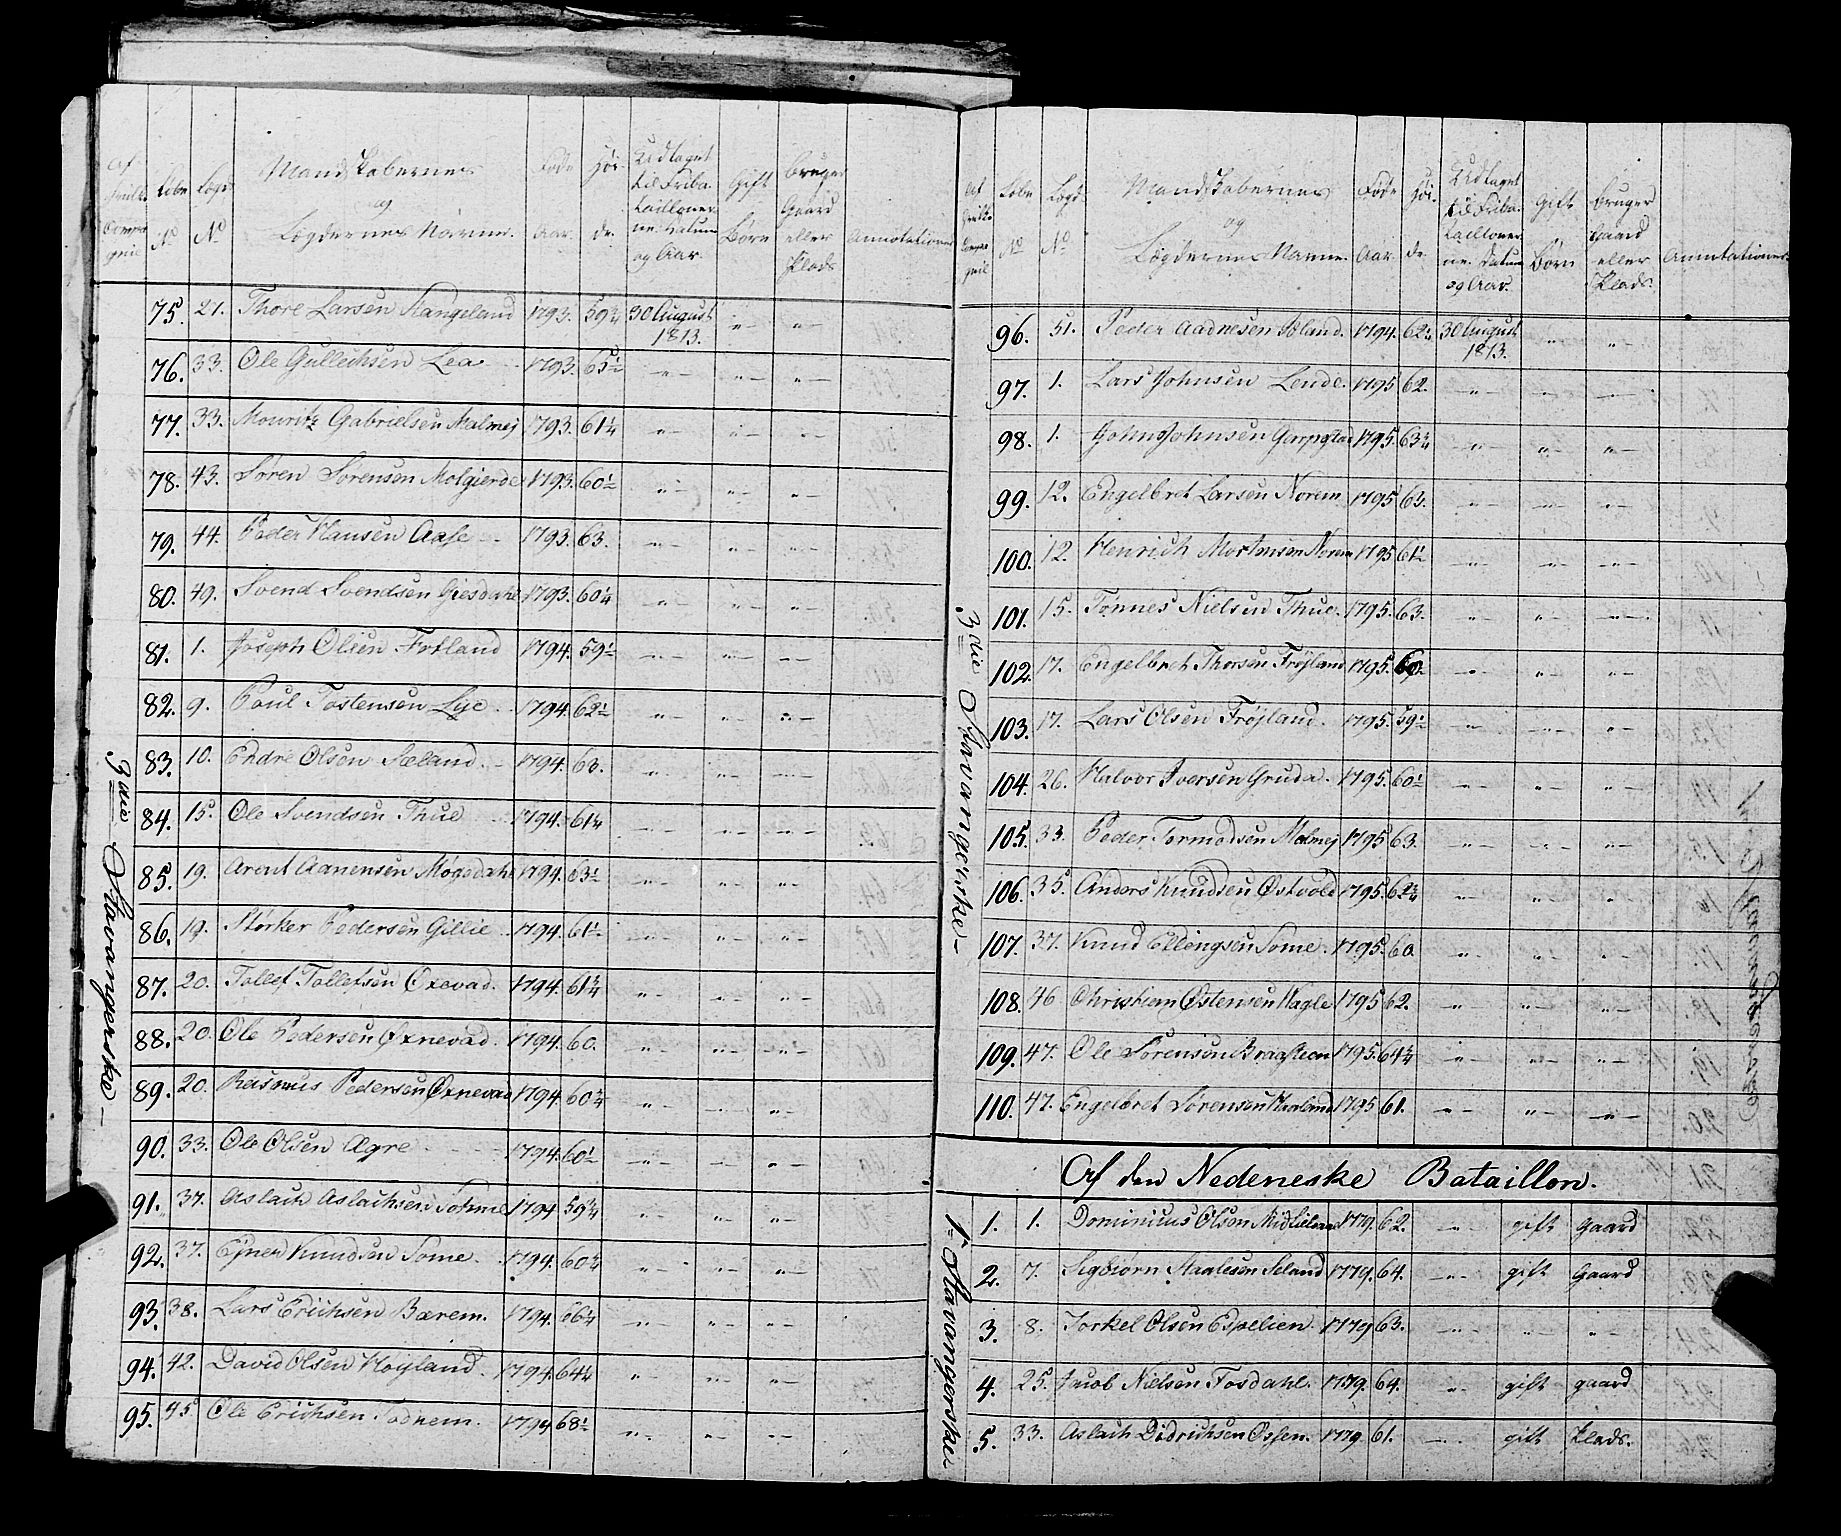 Af hvilke Compagnie | Løbe No | Lægd No | Mandskabernes og Lægdernes Navne. | Føde Aar. | Høide. | Udtaget til Fribataillonerne. Datum og Aar. | Gift Børn | Bruger Gaard eller Plads | Annotationer
3die Stavangerske
75. 21. Thore Larsen Stangeland 1793. 59 3/4 30 August 1813. -"- -"-
76. 33. Ole Gullechsen Lea 1793. 65 1/2 -"- -"- -"-
77. 33. Mouritz Gabrielsen Malmej 1793. 61 1/4 -"- -"- -"-
78. 43. Søren Sørensen Molgierde 1793. 60 1/2 -"- -"- -"-
79. 44. Peder Hansen Aase 1793. 63. -"- -"- -"-
80. 49. Svend Svendsen Giesdahl 1793. 60 1/4 -"- -"- -"-
81. 1. Joseph Olsen Fotland 1794. 59 1/2 -"- -"- -"-
82. 9. Poul Tostensen Lye 1794. 62 1/2 -"- -"- -"-
83. 10. Endre Olsen Sæland 1794. 63. -"- -"- -"-
84. 15. Ole Svendsen Thue 1794. 61 1/4 -"- -"- -"-
85. 19. Arent Aanensen Møgedahl 1794. 63 1/2 -"- -"- -"-
86. 19. Størker Pedersen Gillie 1794. 61 1/2 -"- -"- -"-
87. 20. Tollef Tollefsen Oxevad. 1794. 61 1/4 -"- -"- -"-
88. 20. Ole Pedersen Øxnevad. 1794. 60. -"- -"- -"-
89. 20. Rasmus Pedersen Øxnevad 1794. 60 3/4 -"- -"- -"-
90. 33. Ole Olsen Ægre 1794. 60 1/2 -"- -"- -"-
91. 37. Aslach Aslachsen Somme 1794 59 3/4 -"- -"- -"-
92. 37. Ejner Knudsen Some. 1794. 60 3/4 -"- -"- -"-
93. 38. Lars Erichsen Bærem. 1794. 66 1/4 -"- -"- -"-
94. 42. David Olsen Høyland. 1794. 64 1/4 -"- -"- -"-
95. 45. Ole Erichsen Todnem. 1794 68 1/2 -"- -"- -"-
Af hvilke Compagnie | Løbe No | Lægd No | Mandskabernes og Lægdernes Navne. | Føde Aar. | Høide. | Udtaget til Fribataillonerne. Datum og Aar. | Gift Børn | Bruger Gaard eller Plads. | Annotationer
3die Stavangerske
96. 51. Peder Aadnesen 1794. 62 1/4 30 August 1813. -"- -"-
97. 1. Lars Johnsen Lende. 1795 62. -"- -"- -"-
98. 1. John Johnsen Garpestad 1795. 63 3/4 -"- -"- -"-
99. 12. Engelbret Larsen Norem 1795 -"- -"- -"-
100. 12. Henrich Mortensen Norem 1795 61 1/2 -"- -"- -"-
101. 15. Tønnes Nielsen Thue. 1795. 63. -"- -"- -"-
102. 17. Engelbret Thorsen Frøyland 1795. -"- -"- -"-
103. 17. Lars Olsen Frøjland. 1795. 59 1/2 -"- -"- -"-
104. 26. Halvor Iversen Gruda. 1795. 60 1/2 -"- -"- -"-
105. 33. Peder Tormodsen Malmej 1795 63. -"- -"- -"-
106. 35. Anders Knudsen Østvold 1795. 62 3/4 -"- -"- -"-
107. 37. Knud Ellingsen Some. 1795. 60. -"- -"- -"-
108. 46 Christian Østensen Hagle 1795 62. -"- -"- -"-
109. 47. Ole Sørensen Braastien 1795. 64 3/4 -"- -"- -"-
110. 47. Engelbret Sørensen Haaland 1795 61. -"- -"- -"-
Af den Nedeneske Bataillon.
1ste Stavangerske
1. 1. Dominicus Olsen 1779. 62. -"- gift Gaard
2. 7. Sigbiørn Staalesen Seland 1779. 64. -"- gift Gaard
3. 8. Torkel Olsen Espelien. 1779 63. -"- -"- -"-
4. 25. Jacob Nielsen Fosdahl. 1779. 64. -"- gift gaard
5. 33. Aslach Didrichsen Ossen. 1779 61. -"- gift Plads.